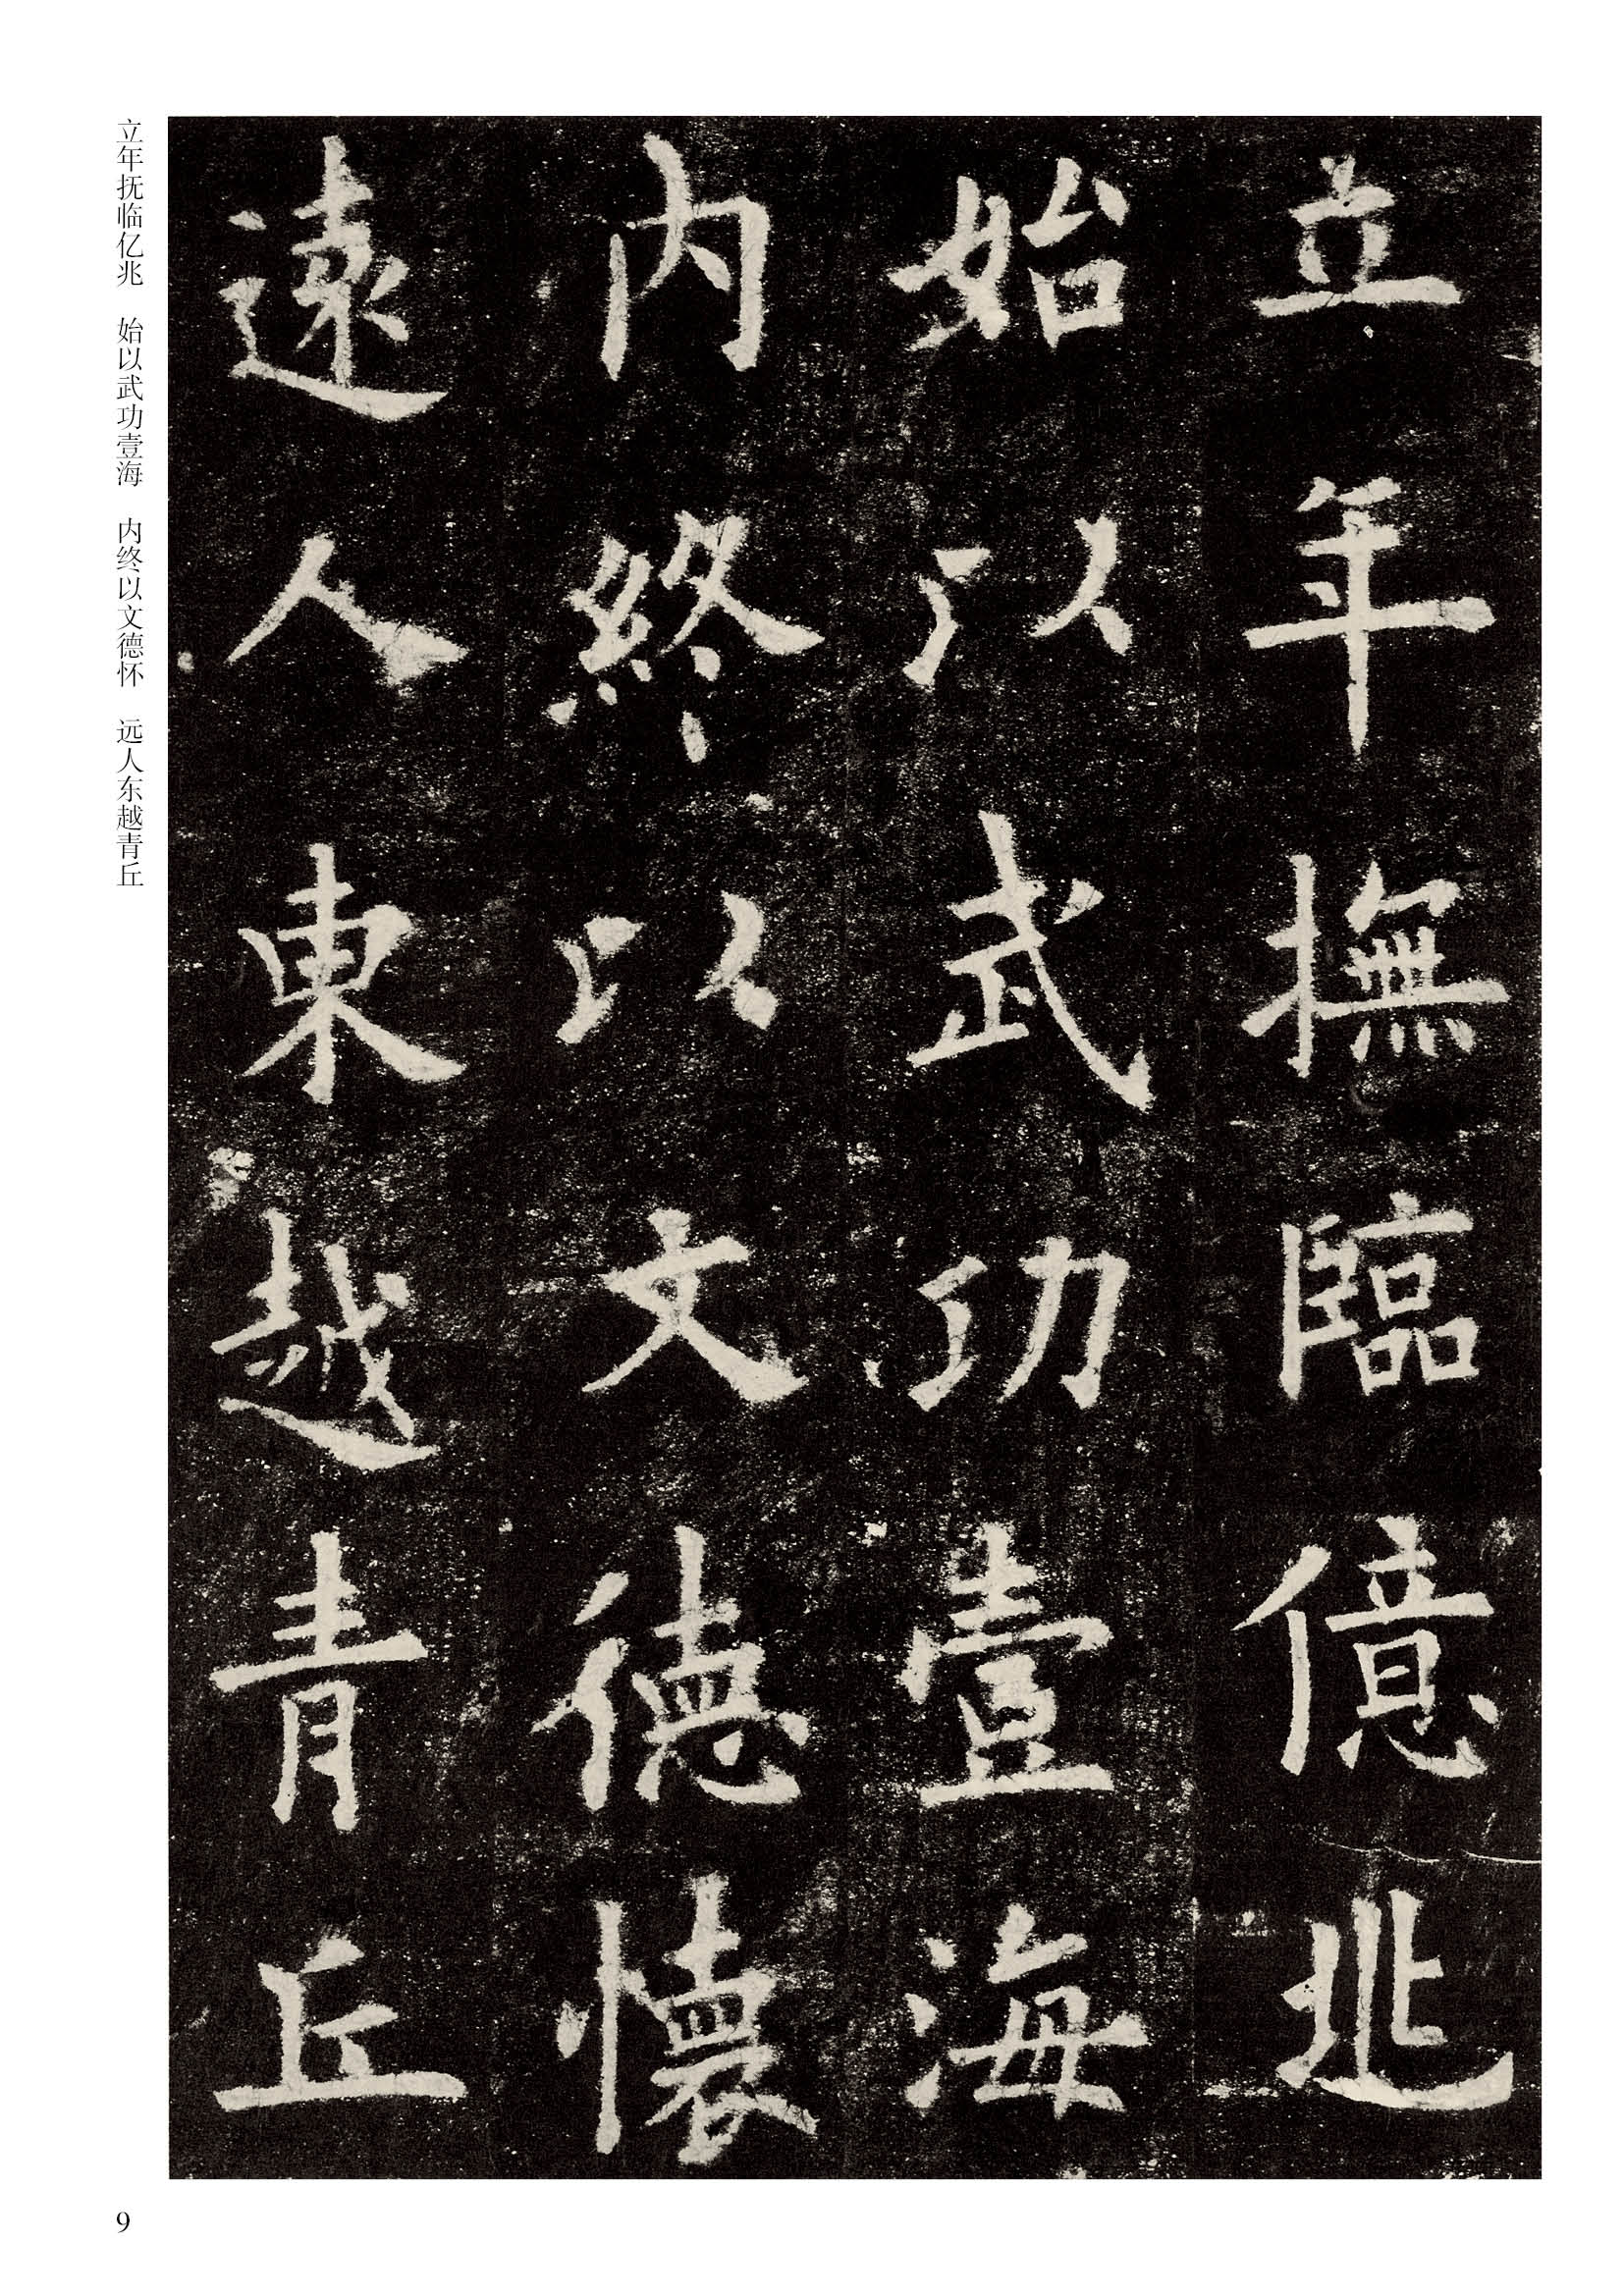 立年撫臨億兆
始以武功壹海
内終以文德懷
遠人東越青丘
立年抚临亿兆 始以武功壹海 内终以文德怀 远人东越青丘
9